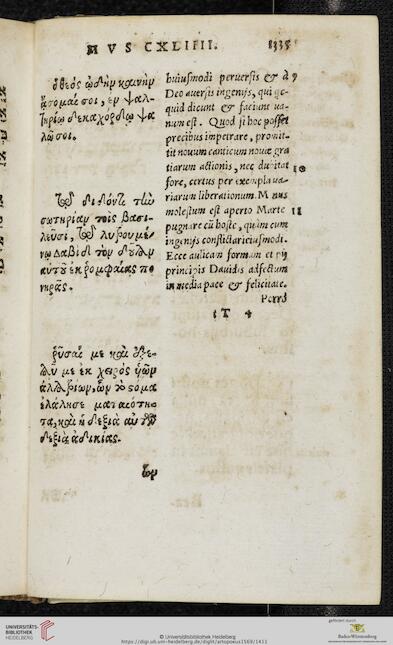 MVS CXLIIII. 1335
ὁ θεὸς ᾠδὴν καινὴν
ᾄσομαί σοι, ἐν ψαλ-
τηρίῳ δεκαχόρδῳ ψα
λῶ σοι.
Τῷ διδόντι τὴν
σωτηρίαν τοῖς βασι-
λεῦσι, τῷ λυτρουμέ-
νῳ Δαβὶδ τὸν δοῦλον
αὐτοῦ ἐκ ῥομφαίας πο
νηρᾶς.
ῥῦσαί με καὶ ἐξε-
λοῦ με ἐκ χειρὸς υἱῶν
ἀλλοτρίων, ὧν τὸ στόμα
ἐλάλησε ματαιότη-
τα, καὶ ἡ δεξιὰ αὐτῶν
δεξιὰ ἀδικίας.
ὧν
huiusmodi peruersis & à 9
Deo auersis ingenijs, qui qc-
quid dicunt & faciunt ua-
num est. Quod si hoc posset
precibus impetrare, promit-
tit nouum canticum nouæ gra
tiarum actionis, nec dubitat 10
fore, certus per exempla ua-
riarum liberationum. Minus
molestum est aperto Marte 11
pugnare cū hoste, quàm cum
ingenijs conflictari eiusmodi.
Ecce aulicam formam et pij
principis Dauidis adfectum
in media pace & felicitate.
Porrò
T 4
UNIVERSITÄTS-
BIBLIOTHEK
HEIDELBERG
© Universitätsbibliothek Heidelberg
https://digi.ub.uni-heidelberg.de/diglit/artopoeus1569/1411
gefördert durch
Baden-Württemberg